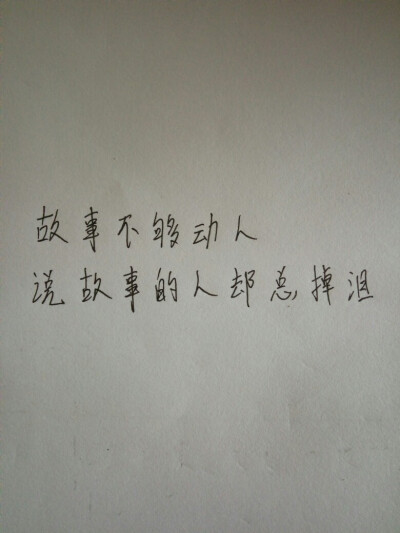 故事不够动人
说故事的人却总掉泪